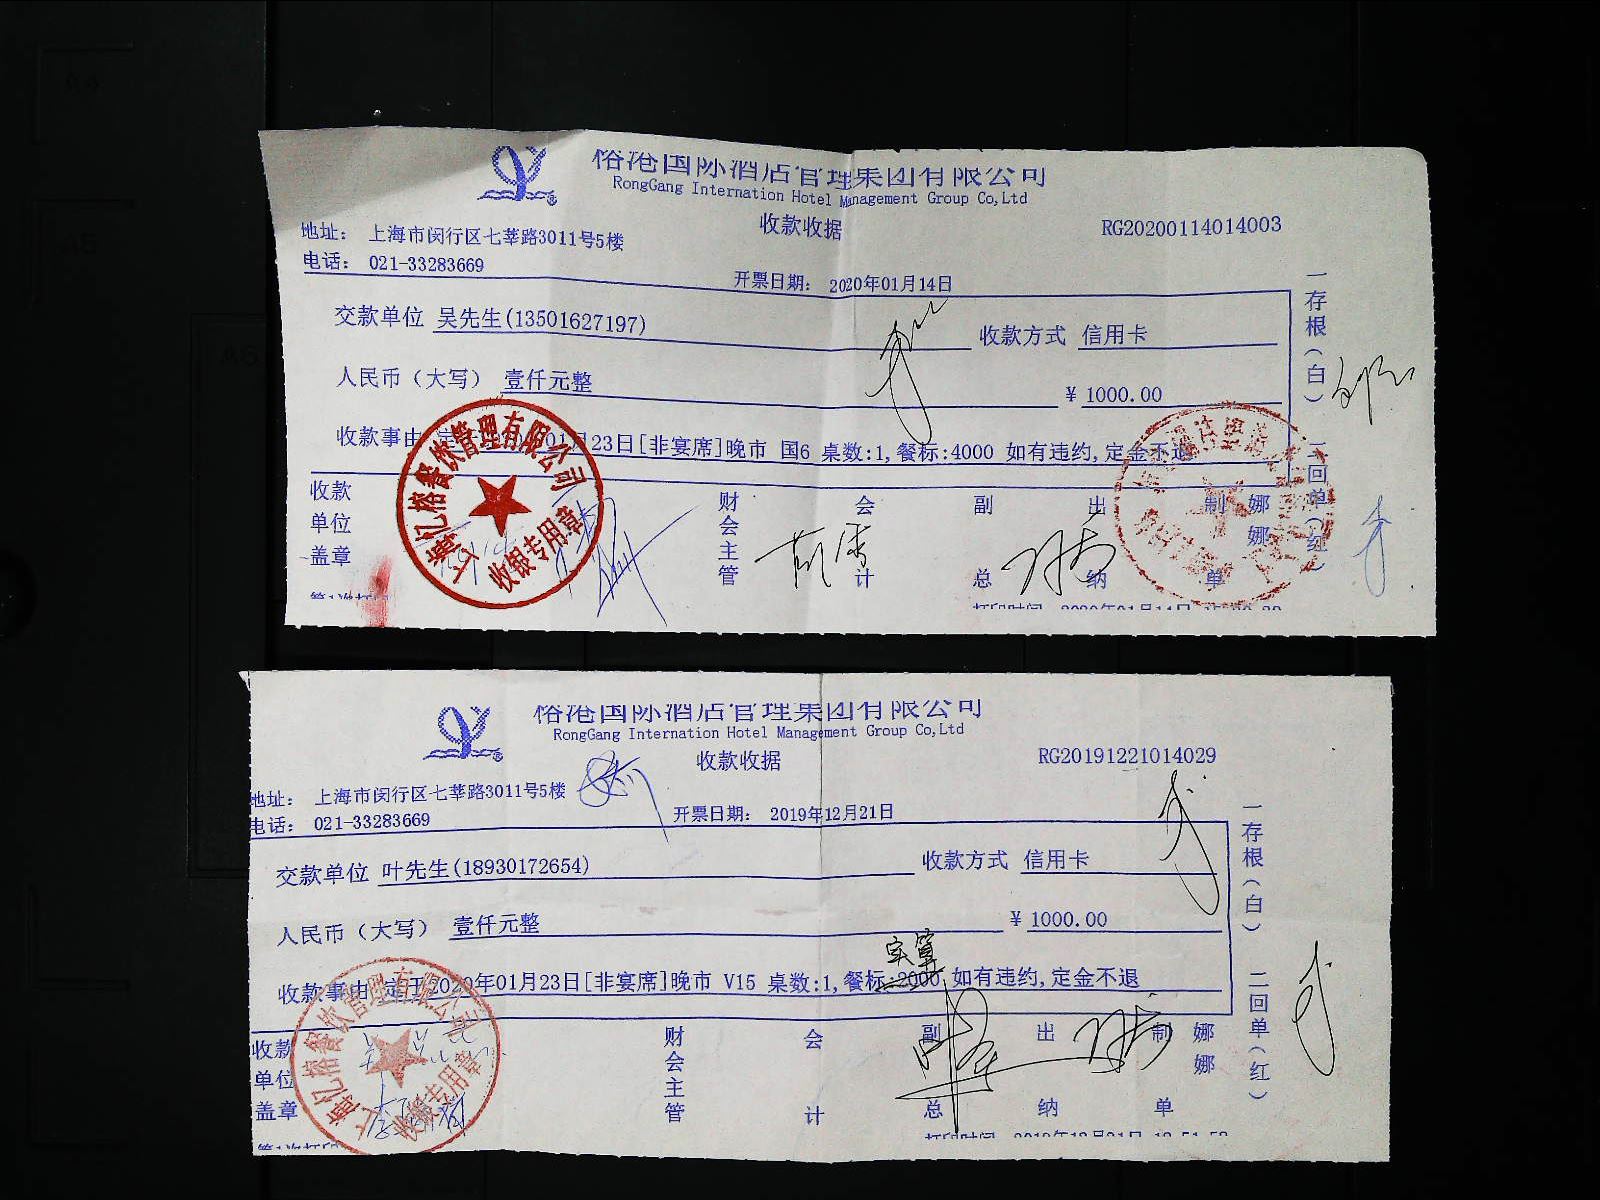 榕港国际酒店管理集团有限公司
RongGang Internation Hotel Management Group Co,Ltd
收款收据
RG20200114014003
地址： 上海市闵行区七莘路3011号5楼
电话： 021-33283669
开票日期： 2020年01月14日
交款单位 吴先生(13501627197)
收款方式 信用卡
人民币（大写） 壹仟元整
¥ 1000.00
收款事由 定于2020年01月23日[非宴席]晚市 国6 桌数:1,餐标:4000 如有违约,定金不退
收款单位盖章
财会主管
会计
副总
出纳
制单
娜娜
一存根(白)
二回单(红)
上海亿榕餐饮管理有限公司
收银专用章
第1次打印
打印时间 2020年01月14日
榕港国际酒店管理集团有限公司
RongGang Internation Hotel Management Group Co,Ltd
收款收据
RG20191221014029
地址： 上海市闵行区七莘路3011号5楼
电话： 021-33283669
开票日期： 2019年12月21日
交款单位 叶先生(18930172654)
收款方式 信用卡
人民币（大写） 壹仟元整
¥ 1000.00
实算
收款事由 定于2020年01月23日[非宴席]晚市 V15 桌数:1,餐标:2000 如有违约,定金不退
收款单位盖章
财会主管
会计
副总
出纳
制单
娜娜
一存根(白)
二回单(红)
上海亿榕餐饮管理有限公司
收银专用章
第1次打印
打印时间 2019年12月21日